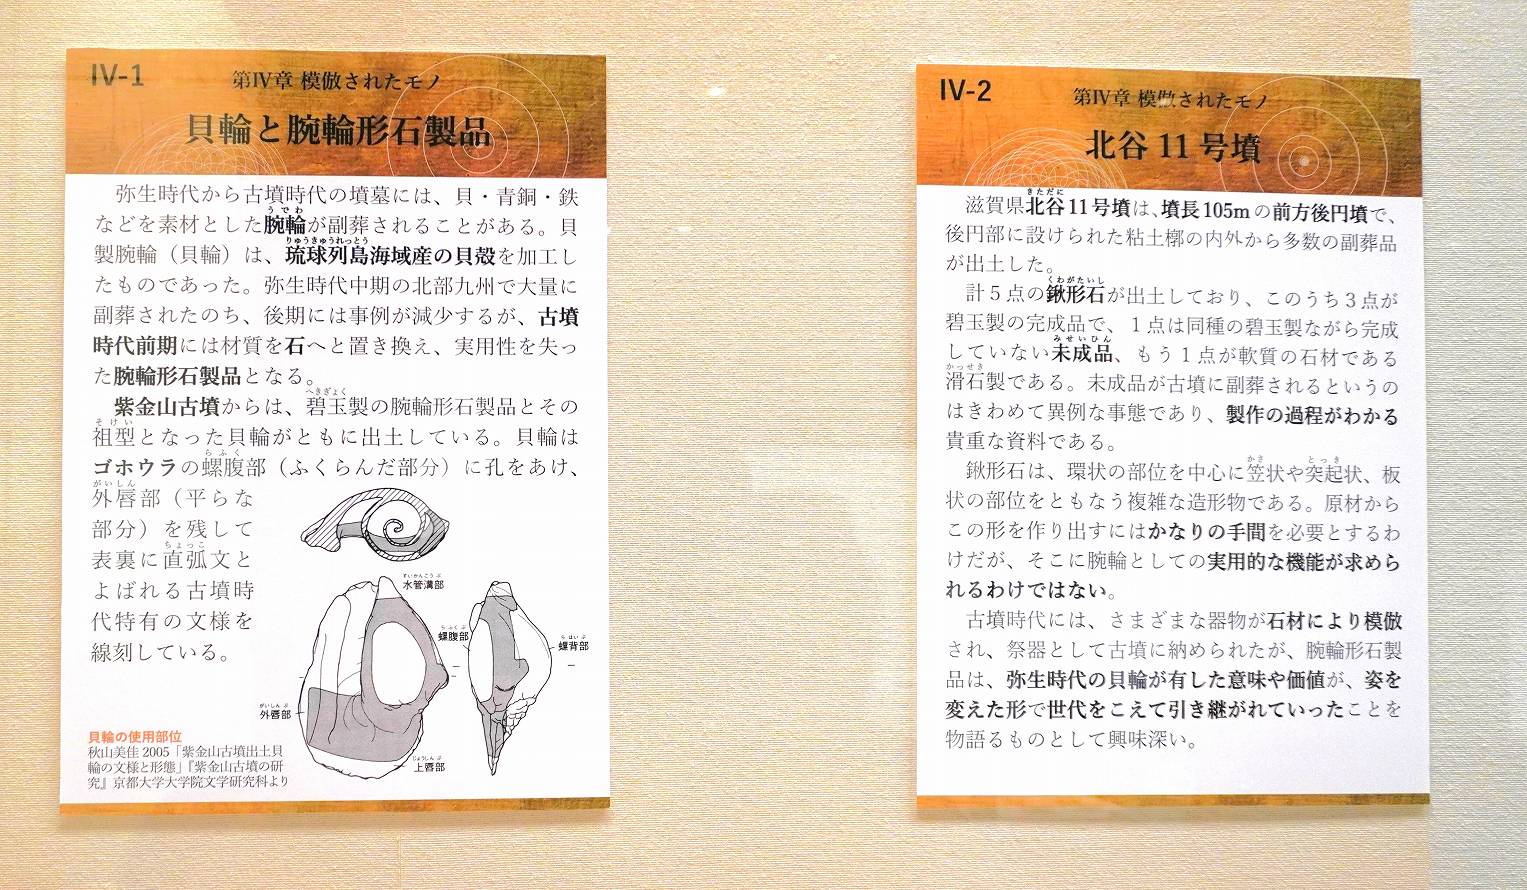 IV-1
第Ⅳ章 模倣されたモノ
貝輪と腕輪形石製品
弥生時代から古墳時代の墳墓には、貝・青銅・鉄
うでわ
などを素材とした腕輪が副葬されることがある。貝
りゅうきゅうれっとう
製腕輪（貝輪）は、琉球列島海域産の貝殻を加工し
たものであった。弥生時代中期の北部九州で大量に
副葬されたのち、後期には事例が減少するが、古墳
時代前期には材質を石へと置き換え、実用性を失っ
た腕輪形石製品となる。
へきぎょく
紫金山古墳からは、碧玉製の腕輪形石製品とその
そけい
祖型となった貝輪がともに出土している。貝輪は
らふく
ゴホウラの螺腹部（ふくらんだ部分）に孔をあけ、
がいしん
外唇部（平らな
部分）を残して
ちょっこ
表裏に直弧文と
よばれる古墳時
代特有の文様を
線刻している。
すいかんこうぶ
水管溝部
らふくぶ
螺腹部
らはいぶ
螺背部
がいしんぶ
外唇部
じょうしんぶ
上唇部
貝輪の使用部位
秋山美佳 2005「紫金山古墳出土貝
輪の文様と形態」『紫金山古墳の研
究』京都大学大学院文学研究科より
IV-2
第Ⅳ章 模倣されたモノ
北谷 11 号墳
きただに
滋賀県北谷 11 号墳は、墳長 105m の前方後円墳で、
後円部に設けられた粘土槨の内外から多数の副葬品
が出土した。
くわがたいし
計５点の鍬形石が出土しており、このうち３点が
碧玉製の完成品で、１点は同種の碧玉製ながら完成
みせいひん
していない未成品、もう１点が軟質の石材である
かっせき
滑石製である。未成品が古墳に副葬されるというの
はきわめて異例な事態であり、製作の過程がわかる
貴重な資料である。
かさ とっき
鍬形石は、環状の部位を中心に笠状や突起状、板
状の部位をともなう複雑な造形物である。原材から
この形を作り出すにはかなりの手間を必要とするわ
けだが、そこに腕輪としての実用的な機能が求めら
れるわけではない。
古墳時代には、さまざまな器物が石材により模倣
され、祭器として古墳に納められたが、腕輪形石製
品は、弥生時代の貝輪が有した意味や価値が、姿を
変えた形で世代をこえて引き継がれていったことを
物語るものとして興味深い。